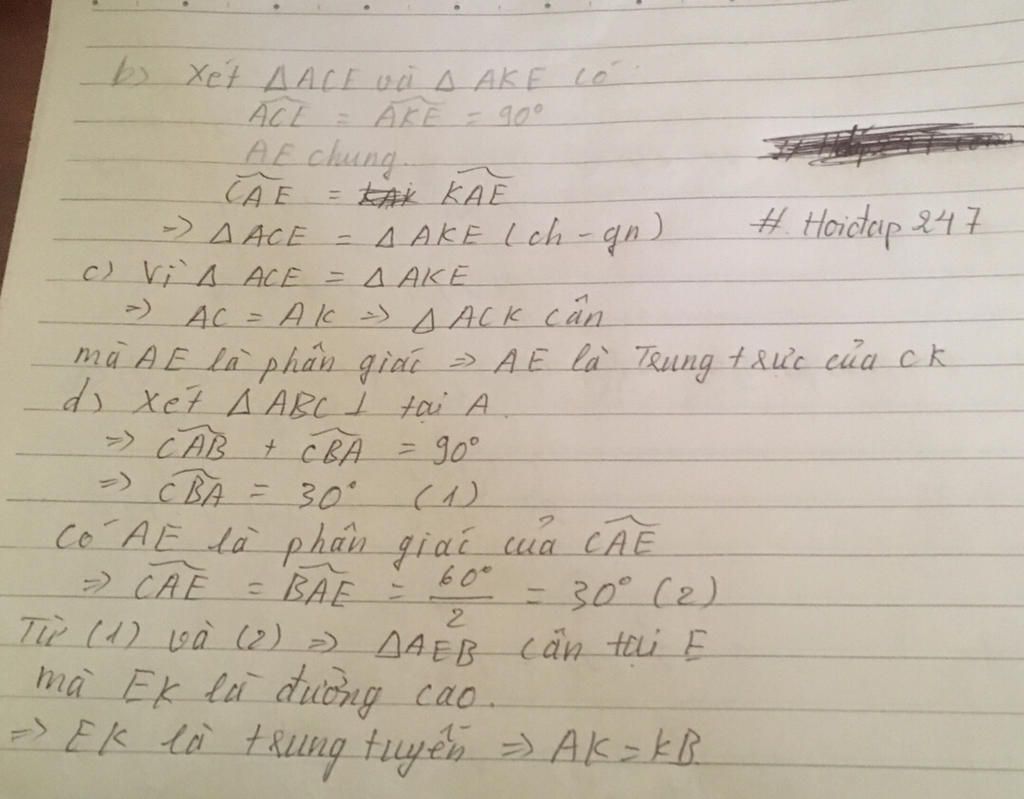 b) Xét Δ ACE và Δ AKE có
ACE = AKE = 90°
AE chung.
CAE = KAE
=> Δ ACE = Δ AKE (ch - gn)
# Hoictap 247
c) Vì Δ ACE = Δ AKE
=> AC = AK => Δ ACK cân
mà AE là phân giác => AE là Trung trực của CK
d) Xét Δ ABC ⊥ tại A.
=> CAB + CBA = 90°
=> CBA = 30° (1)
có AE là phân giác của CAE
=> CAE = BAE = 60°/2 = 30° (2)
Từ (1) và (2) => ΔAEB cân tại E
mà EK là đường cao.
=> EK là trung tuyến => AK = KB